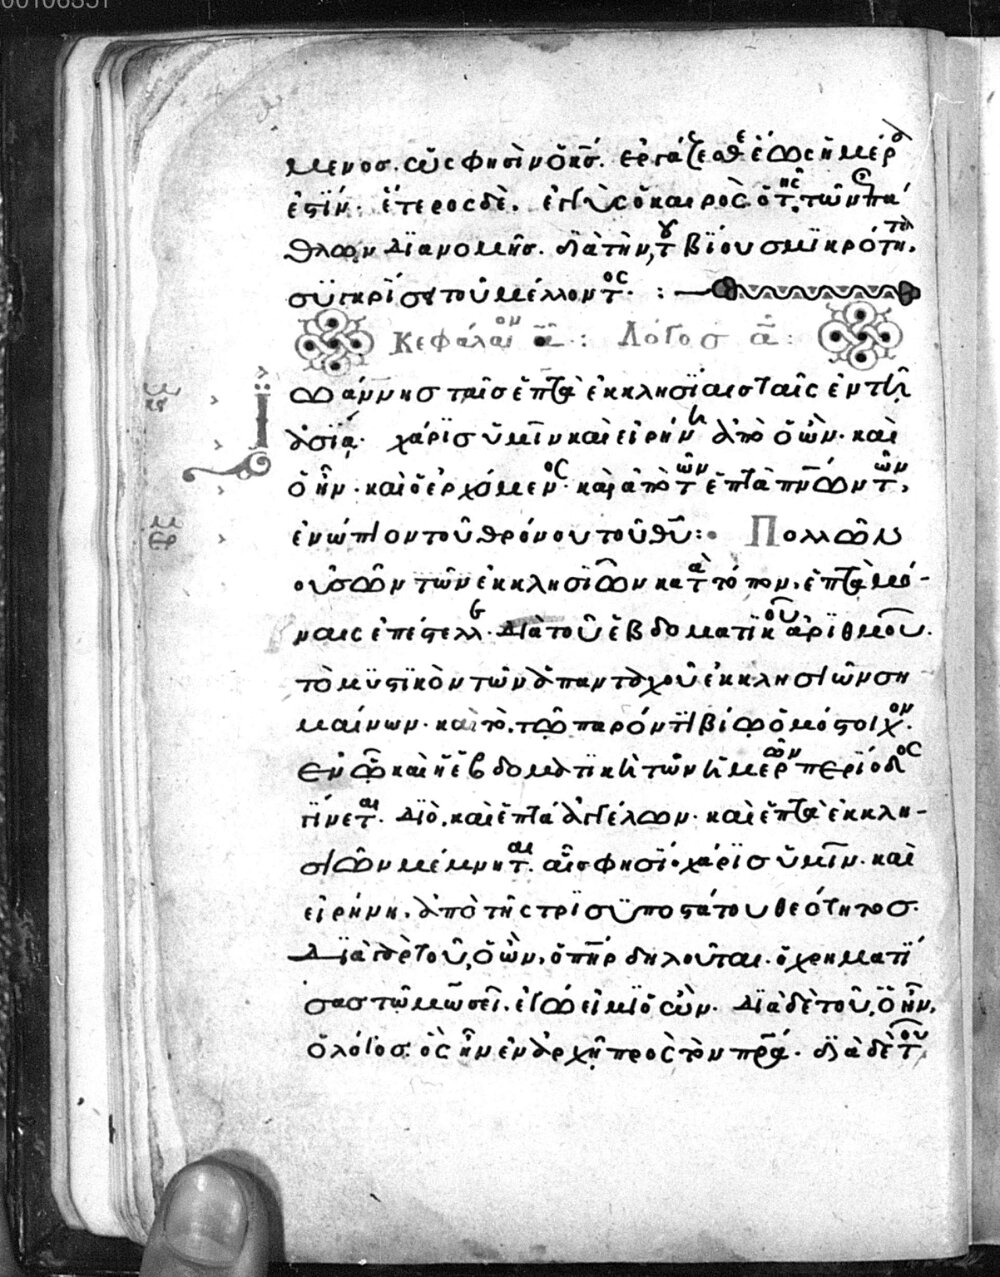 μενοσ. ὥς φησιν ὁ κ̅ς̅. ἐργάζεσθε ἕως ἡμέρα
ἐστίν. ἕτερος δὲ. ἐγγὺς ὁ καιρὸς ὁ τῆς τῶν
ἄθλων διανομῆσ. διὰ τὴν τοῦ βίου σμικρότητα.
συγκρίσει τοῦ μέλλοντος :
Κεφάλαιον α̅ : Λόγοσ α̅ :
Ιωάννησ ταῖσ ἑπτὰ ἐκκλησίαισ ταῖς ἐν τῆ
ἀσία. χάρισ ὑμῖν καὶ εἰρήνη ἀπὸ ὁ ὢν. καὶ
ὁ ἦν. καὶ ὁ ἐρχόμενος. καὶ ἀπὸ τῶν ἑπτὰ πν̅ων τῶν
ἐνώπιον τοῦ θρόνου τοῦ θυ̅ : Πολλῶν
οὐσῶν τῶν ἐκκλησιῶν κατὰ τόπον. ἑπτὰ μό-
ναις ἐπέστειλεν. διὰ τοῦ ἑβδοματικοῦ ἀριθμοῦ.
τὸ μυστικὸν τῶν ἁπανταχοῦ ἐκκλησιῶν ση
μαίνων. καὶ τὸ. τῶ παρόντι βίω ὁμόστοιχον.
ἐν ὧ καὶ ἡ ἑβδοματικὴ τῶν ἡμερῶν περίοδος
γίνεται. διὸ. καὶ ἑπτὰ ἀγγέλων. καὶ ἑπτὰ ἐκκλη-
σιῶν μέμνηται. αἷσ φησὶ. χάρισ ὑμῖν. καὶ
εἰρήνη. ἀπὸ τῆς τρισυποστάτου θεότητοσ.
διὰ γὰρ τοῦ, ὁ ὢν. ὁ πη̅ρ δηλοῦται. ὁ χρηματί
σας τῶ μωσεῖ. ἐγώ εἰμι ὁ ὤν. διὰ δὲ τοῦ, ὁ ἦν.
ὁ λόγοσ. ὃς ἦν ἐν ἀρχῆ πρὸς τὸν πρ̅α. διὰ δὲ τοῦ